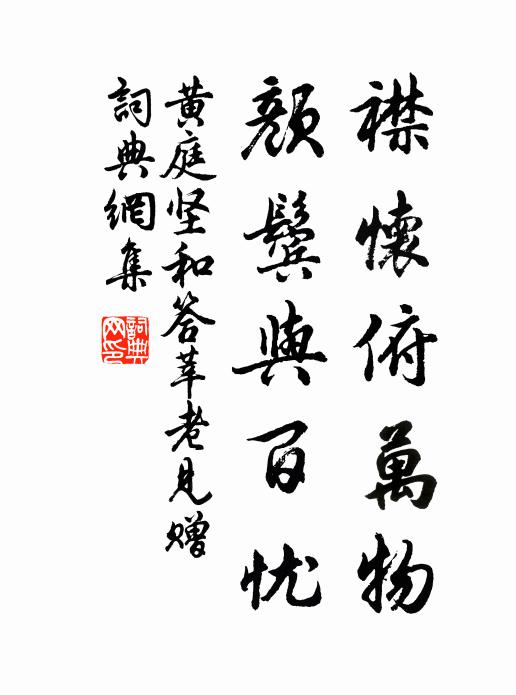 襟懷俯萬物
顏鬢與百忧
黄庭坚和答莘老見赠
詞典網集
詞典网印